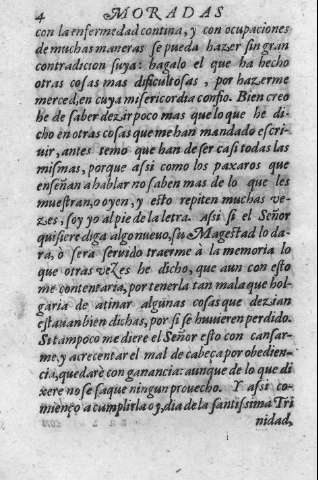 4 MORADAS
con la enfermedad contina, y con ocupaciones
de muchas maneras se pueda hazer sin gran
contradicion suya: hagalo el que ha hecho
otras cosas mas dificultosas, por hazerme
merced, en cuya misericordia confio. Bien creo
he de saber dezir poco mas que lo que he di-
cho en otras cosas que me han mandado escri-
uir, antes temo que han de ser casi todas las
mismas, porque assi como los paxaros que
enseñan a hablar no saben mas de lo que les
muestran, o oyen, y esto repiten muchas ve-
zes, soy yo al pie de la letra. Assi si el Señor
quisiere diga algo nueuo, su Magestad lo da-
ra, ò sera seruido traerme à la memoria lo
que otras vezes he dicho, que aun con esto
me contentaria, por tenerla tan mala que hol-
garia de atinar algunas cosas que dezian
estauan bien dichas, por si se huuieren perdido.
Si tampoco me diere el Señor esto con cansar-
me, y acrecentar el mal de cabeça por obedien-
cia, quedarè con ganancia: aunque de lo que di
xere no se saque ningun prouecho. Y assi co-
mienço a cumplirla oy, dia de la santissima Tri
nidad,